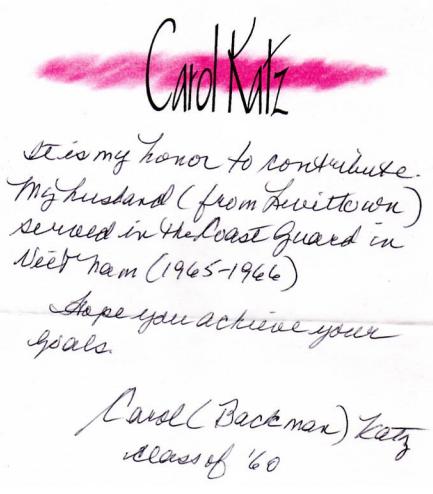 Carol Katz
It is my honor to contribute.
My husband (from Levittown)
served in the Coast Guard in
Viet Nam (1965-1966)
Hope you achieve your
goals.
Carol (Backman) Katz
class of '60